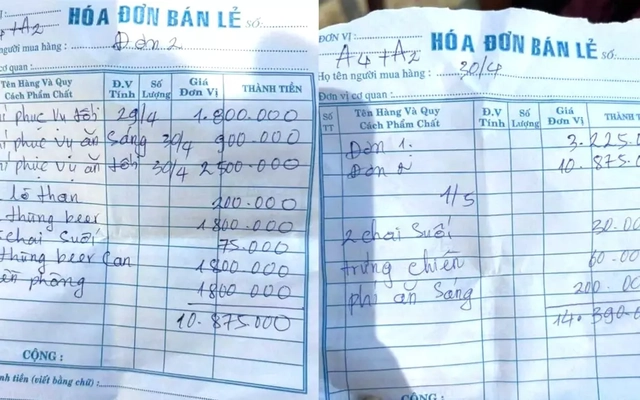 HÓA ĐƠN BÁN LẺ SỐ:
4+A2
người mua hàng : Đơn 2
cơ quan :
Tên Hàng Và Quy Cách Phẩm Chất Đ.V Tính Số Lượng Giá Đơn Vị THÀNH TIỀN
phục vụ tối 29/4 1.800.000
phục vụ ăn sáng 30/4 900.000
phục vụ ăn tối 30/4 2500.000
lò than 200.000
thùng beer 1800.000
chai Suối 75.000
thùng beer Can 1800.000
phòng 1800.000
10.875.000
CỘNG :
tiền (viết bằng chữ) :
ĐƠN VỊ : HÓA ĐƠN BÁN LẺ SỐ:
A4+A2
Họ tên người mua hàng : 30/4
Đơn vị cơ quan :
Số TT Tên Hàng Và Quy Cách Phẩm Chất Đ.V Tính Số Lượng Giá Đơn Vị THÀNH T
Đơn 1. 3.225.0
Đơn 2 10.875.0
1/5
2 chai Suối 30.00
trứng chiên 60.00
phí ăn Sáng 200.00
14.390.0
CỘNG :